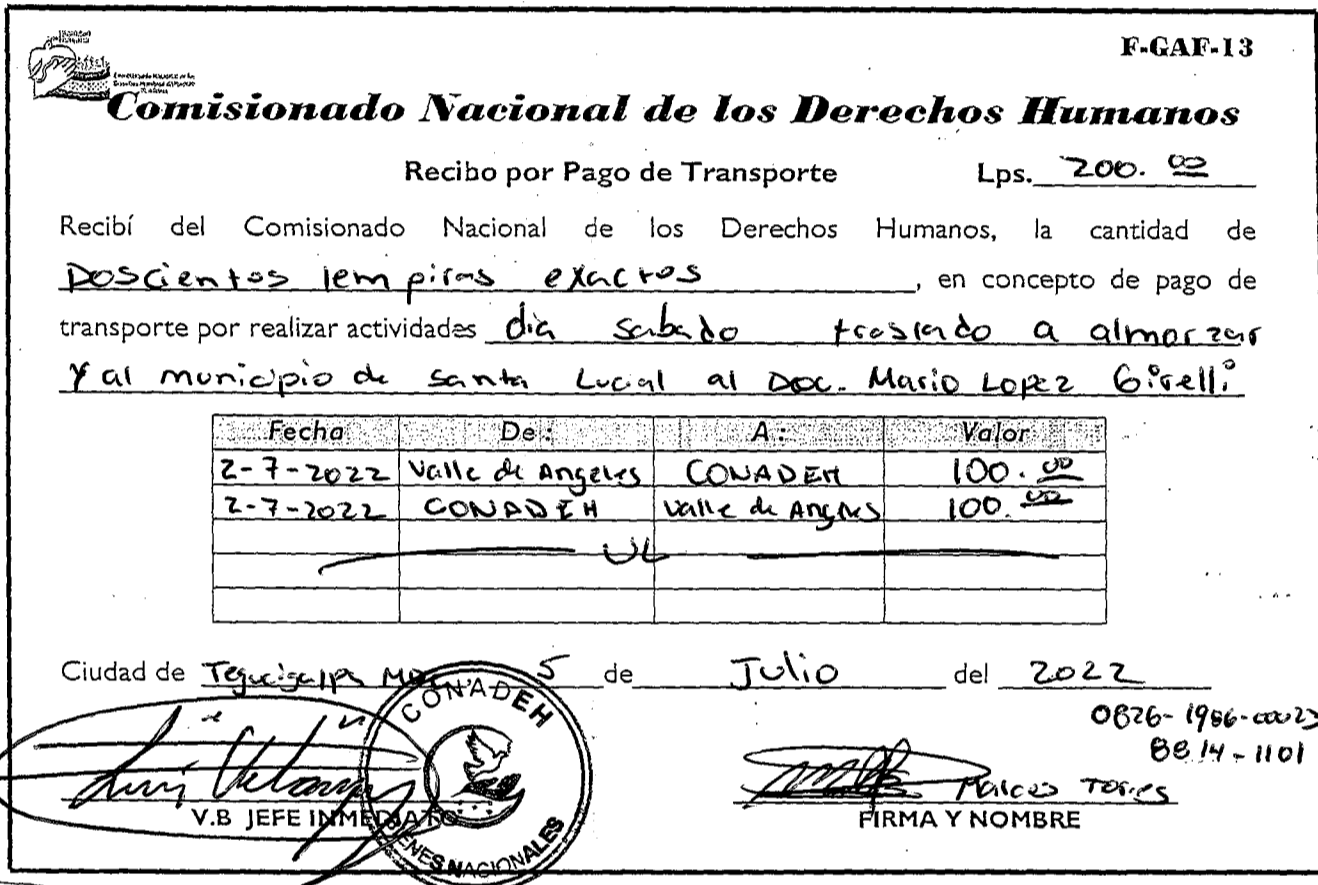 F-GAF-13
Comisionado Nacional de los Derechos Humanos
Recibo por Pago de Transporte Lps. 200.00
Recibí del Comisionado Nacional de los Derechos Humanos, la cantidad de
Doscientos lempiras exactos, en concepto de pago de
transporte por realizar actividades dia sabado traslado a almorzar
y al municipio de Santa Lucial al Doc. Mario Lopez
Fecha De: A: Valor
2-7-2022 Valle de Angeles CONADEH 100.00
2-7-2022 CONADEH Valle de Angeles 100.00
UL
Ciudad de Tegucigalpa 5 de Julio del 2022
CONADEH
BIENES NACIONALES
8814-1101
Torres
V.B JEFE INMEDIATO FIRMA Y NOMBRE